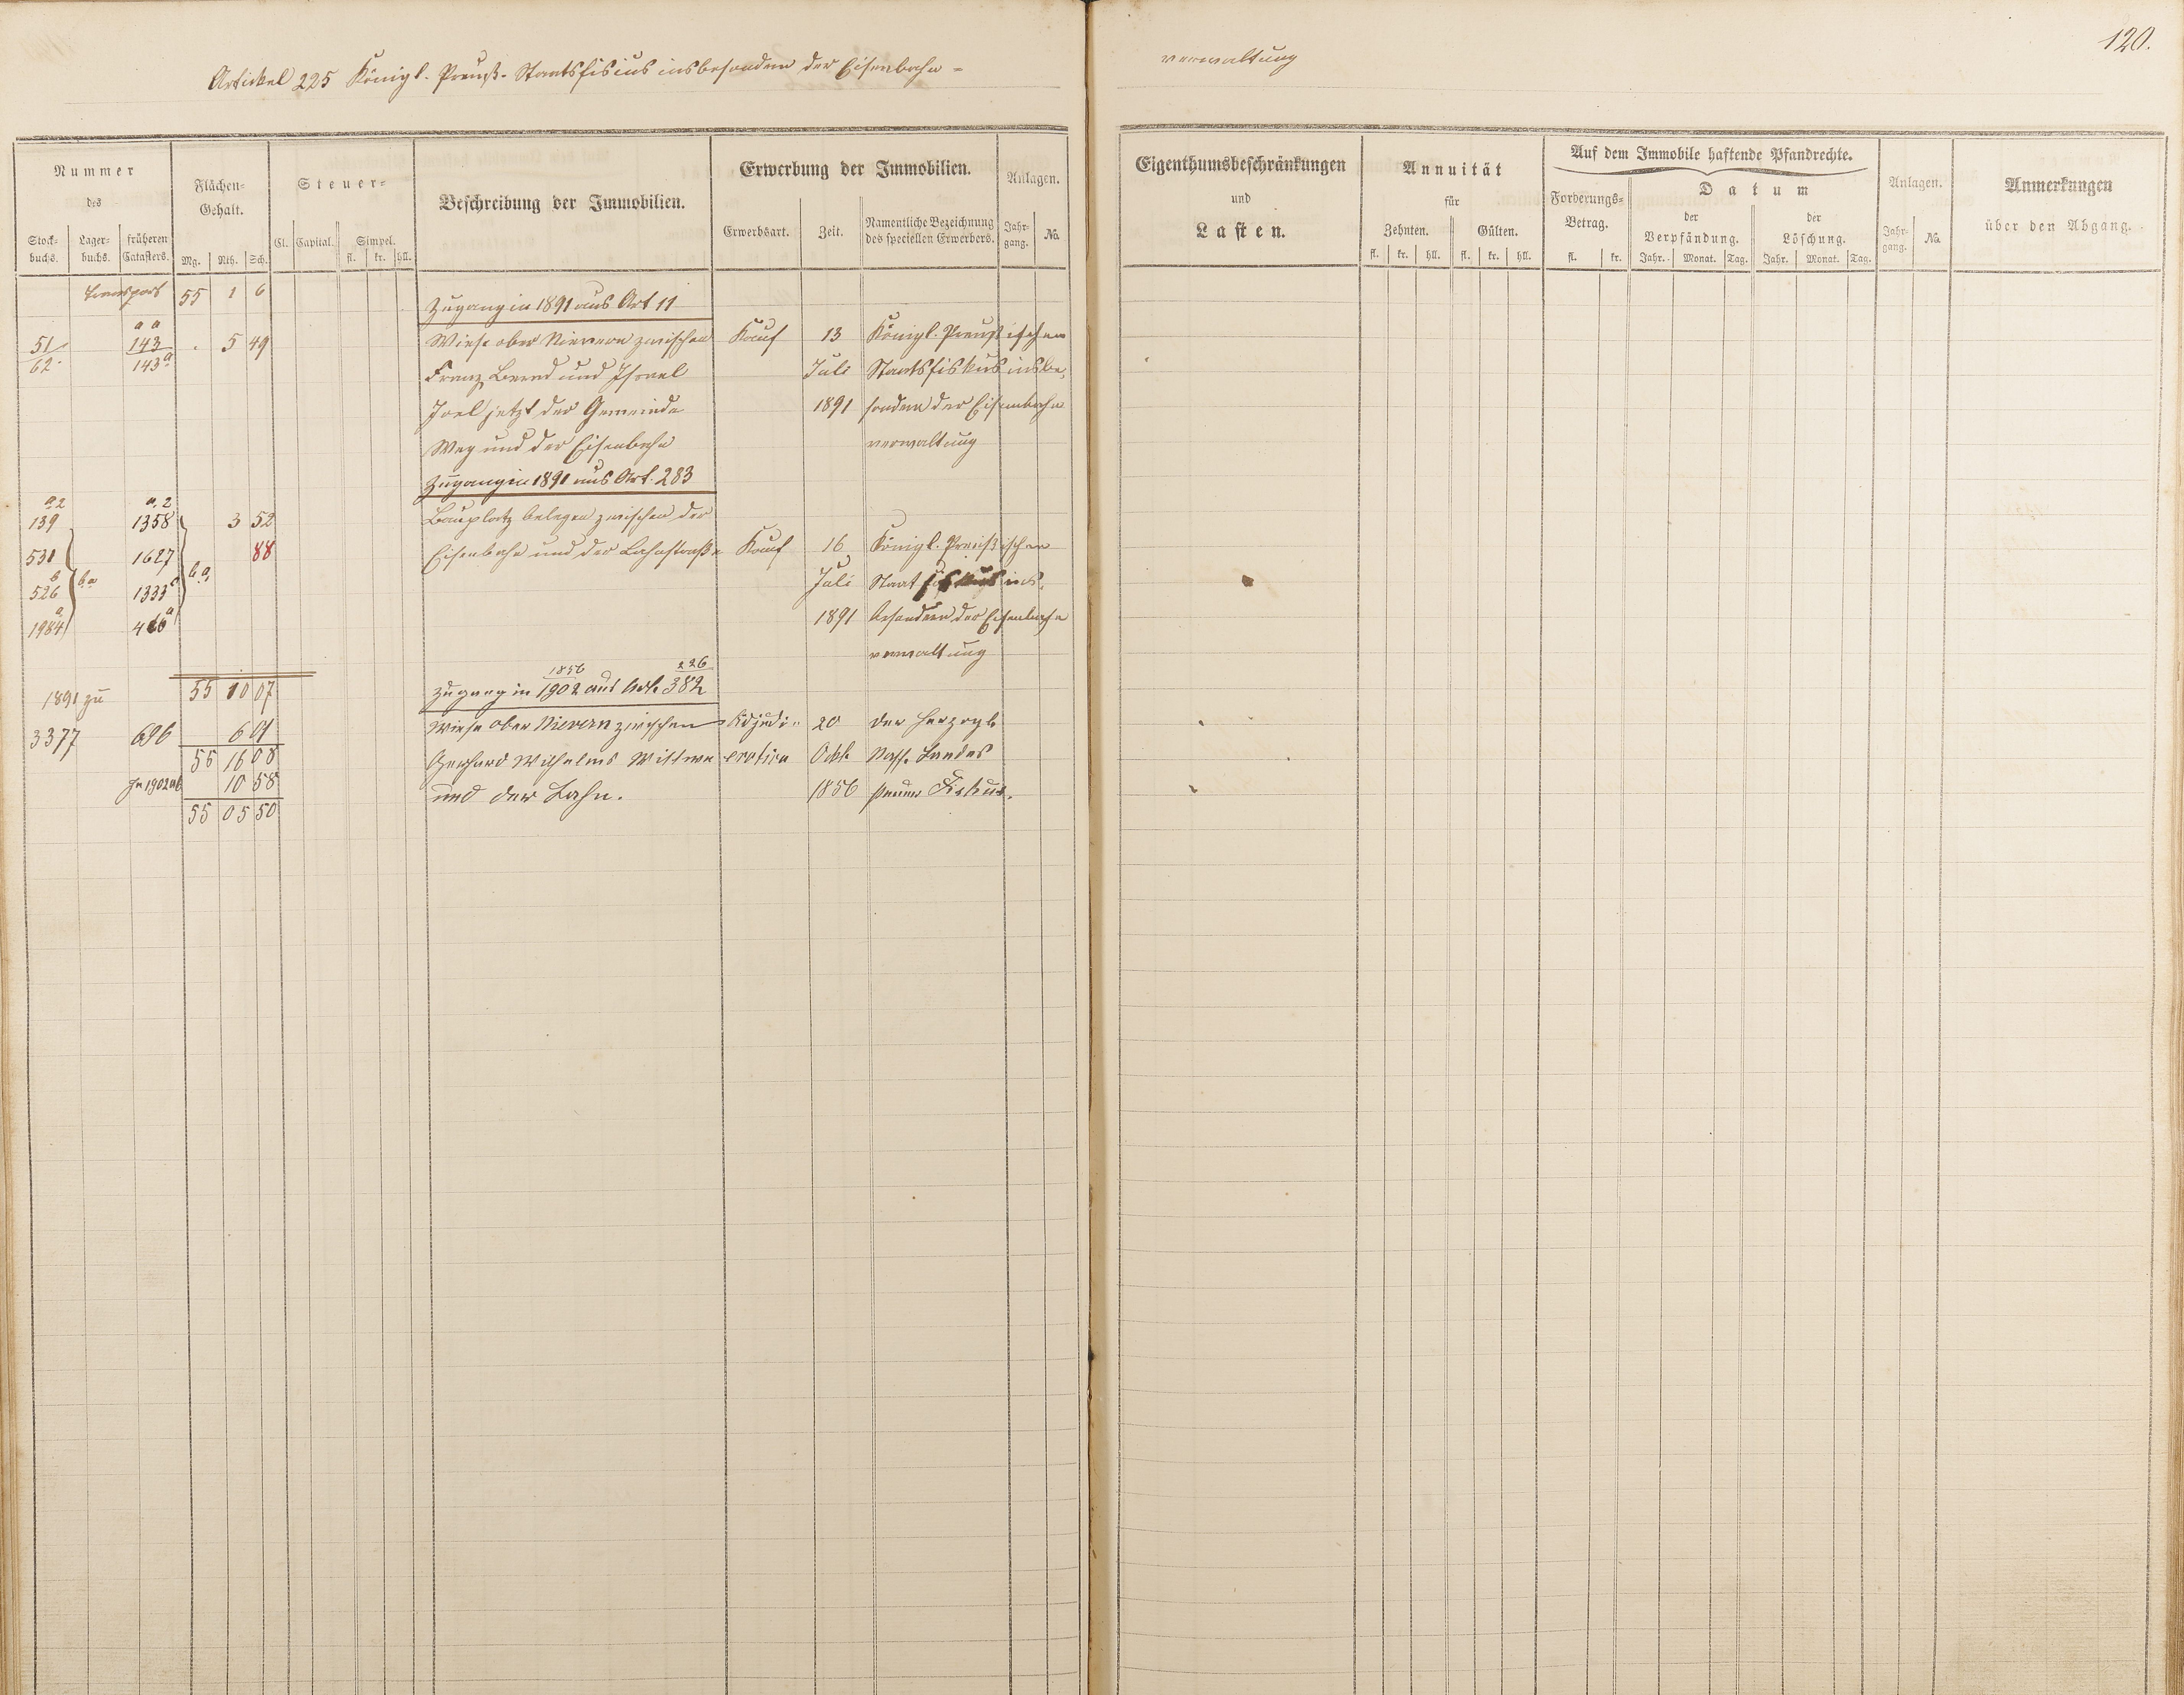 120.
Artickel 225 Königl. Preuß. Staatsfiscus insbesondere der Eisenbahn-
verwaltung
Nummer
des
Stock-
buchs.
Lager-
buchs.
früheren
Catasters.
Flächen-
Gehalt.
Mg. Rth. Sch.
Steuer-
Cl. Capital. Simpel.
fl. kr. hll.
Beschreibung der Immobilien.
Erwerbung der Immobilien.
Erwerbsart. Zeit. Namentliche Bezeichnung
des speciellen Erwerbers.
Anlagen.
Jahr-
gang. No.
Eigenthumsbeschränkungen
und
Lasten.
Annuität
für
Zehnten. Gülten.
fl. kr. hll. fl. kr. hll.
Auf dem Immobile haftende Pfandrechte.
Forderungs-
Betrag.
fl. kr.
Datum
der
Verpfändung.
der
Löschung.
Jahr. Monat. Tag. Jahr. Monat. Tag.
Anlagen.
Jahr-
gang. No.
Anmerkungen
über den Abgang.
Transport 55 1 6
Zugang in 1891 aus Art 11
a a
51 143 . 5 49 Wiese ober Nievern zwischen Kauf 13 Königl. Preußischen
62 143a Franz Bernd und Israel Juli Staatsfiskus insbe-
Joel jetzt der Gemeinde 1891 sondere der Eisenbahn
Weg und der Eisenbahn verwaltung
Zugang in 1891 aus Art. 283
a2 a.2
139 1358 3 52 Bauplatz belegen zwischen der
531 1627 88 Eisenbahn und der Lahnstraße Kauf 16 Königl. Preußischen
526b 6a 1333c 6.a Juli Staatsfiskus ins-
1984a 466a 1891 besondere der Eisenbahn
verwaltung
1856 226
1891 zu 55 10 07 Zugang in 1902 aus Art. 382
3377 696 6 01 Wiese ober Nievern zwischen Adjudi- 20 der Herzogl.
55 16 08 Gerhard Wilhelms Wittwe cation Octb. Nass. Landes
In 1902 ab 10 58 und der Lahn. 1856 steuer Fiskus.
55 05 50